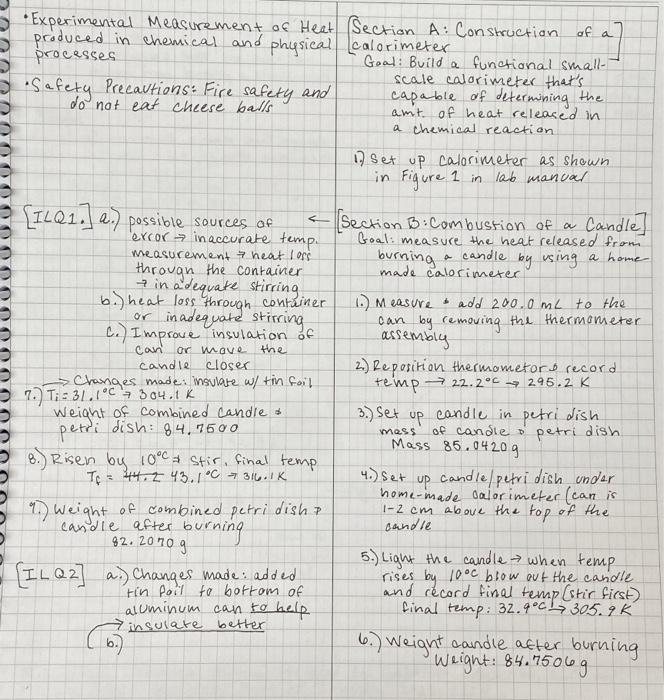 •Experimental Measurement of Heat
produced in chemical and physical
processes
•Safety Precautions: Fire safety and
do not eat cheese balls
[ILQ1.] a.) possible sources of
error → inaccurate temp.
measurement → heat loss
through the container
→ inadequate stirring
b.) heat loss through container
or inadequate stirring
c.) Improve insulation of
can or move the
candle closer
→ Changes made: insulate w/ tin foil
7.) Ti = 31.1°C → 304.1 K
Weight of combined candle &
petri dish: 84.7500
8.) Risen by 10°C → stir, final temp
Tf = 44.2 43.1°C → 316.1K
9.) Weight of combined petri dish &
candle after burning
82.2070 g
[ILQ2] a.) Changes made: added
tin foil to bottom of
aluminum can to help
insulate better
b.)
[Section A: Construction of a
calorimeter]
Goal: Build a functional small-
scale calorimeter that's
capable of determining the
amt. of heat released in
a chemical reaction
1.) Set up calorimeter as shown
in Figure 1 in lab manual
← [Section B: Combustion of a Candle]
Goal: measure the heat released from
burning a candle by using a home
made calorimeter
1.) Measure & add 200.0 mL to the
can by removing the thermometer
assembly
2.) Reposition thermometer & record
temp → 22.2°C → 295.2 K
3.) Set up candle in petri dish
mass of candle & petri dish
Mass 85.0420g
4.) Set up candle/petri dish under
home-made calorimeter (can is
1-2 cm above the top of the
candle
5.) Light the candle → when temp
rises by 10°C blow out the candle
and record final temp (stir first)
final temp: 32.9°C → 305.9 K
6.) Weight candle after burning
Weight: 84.7506g